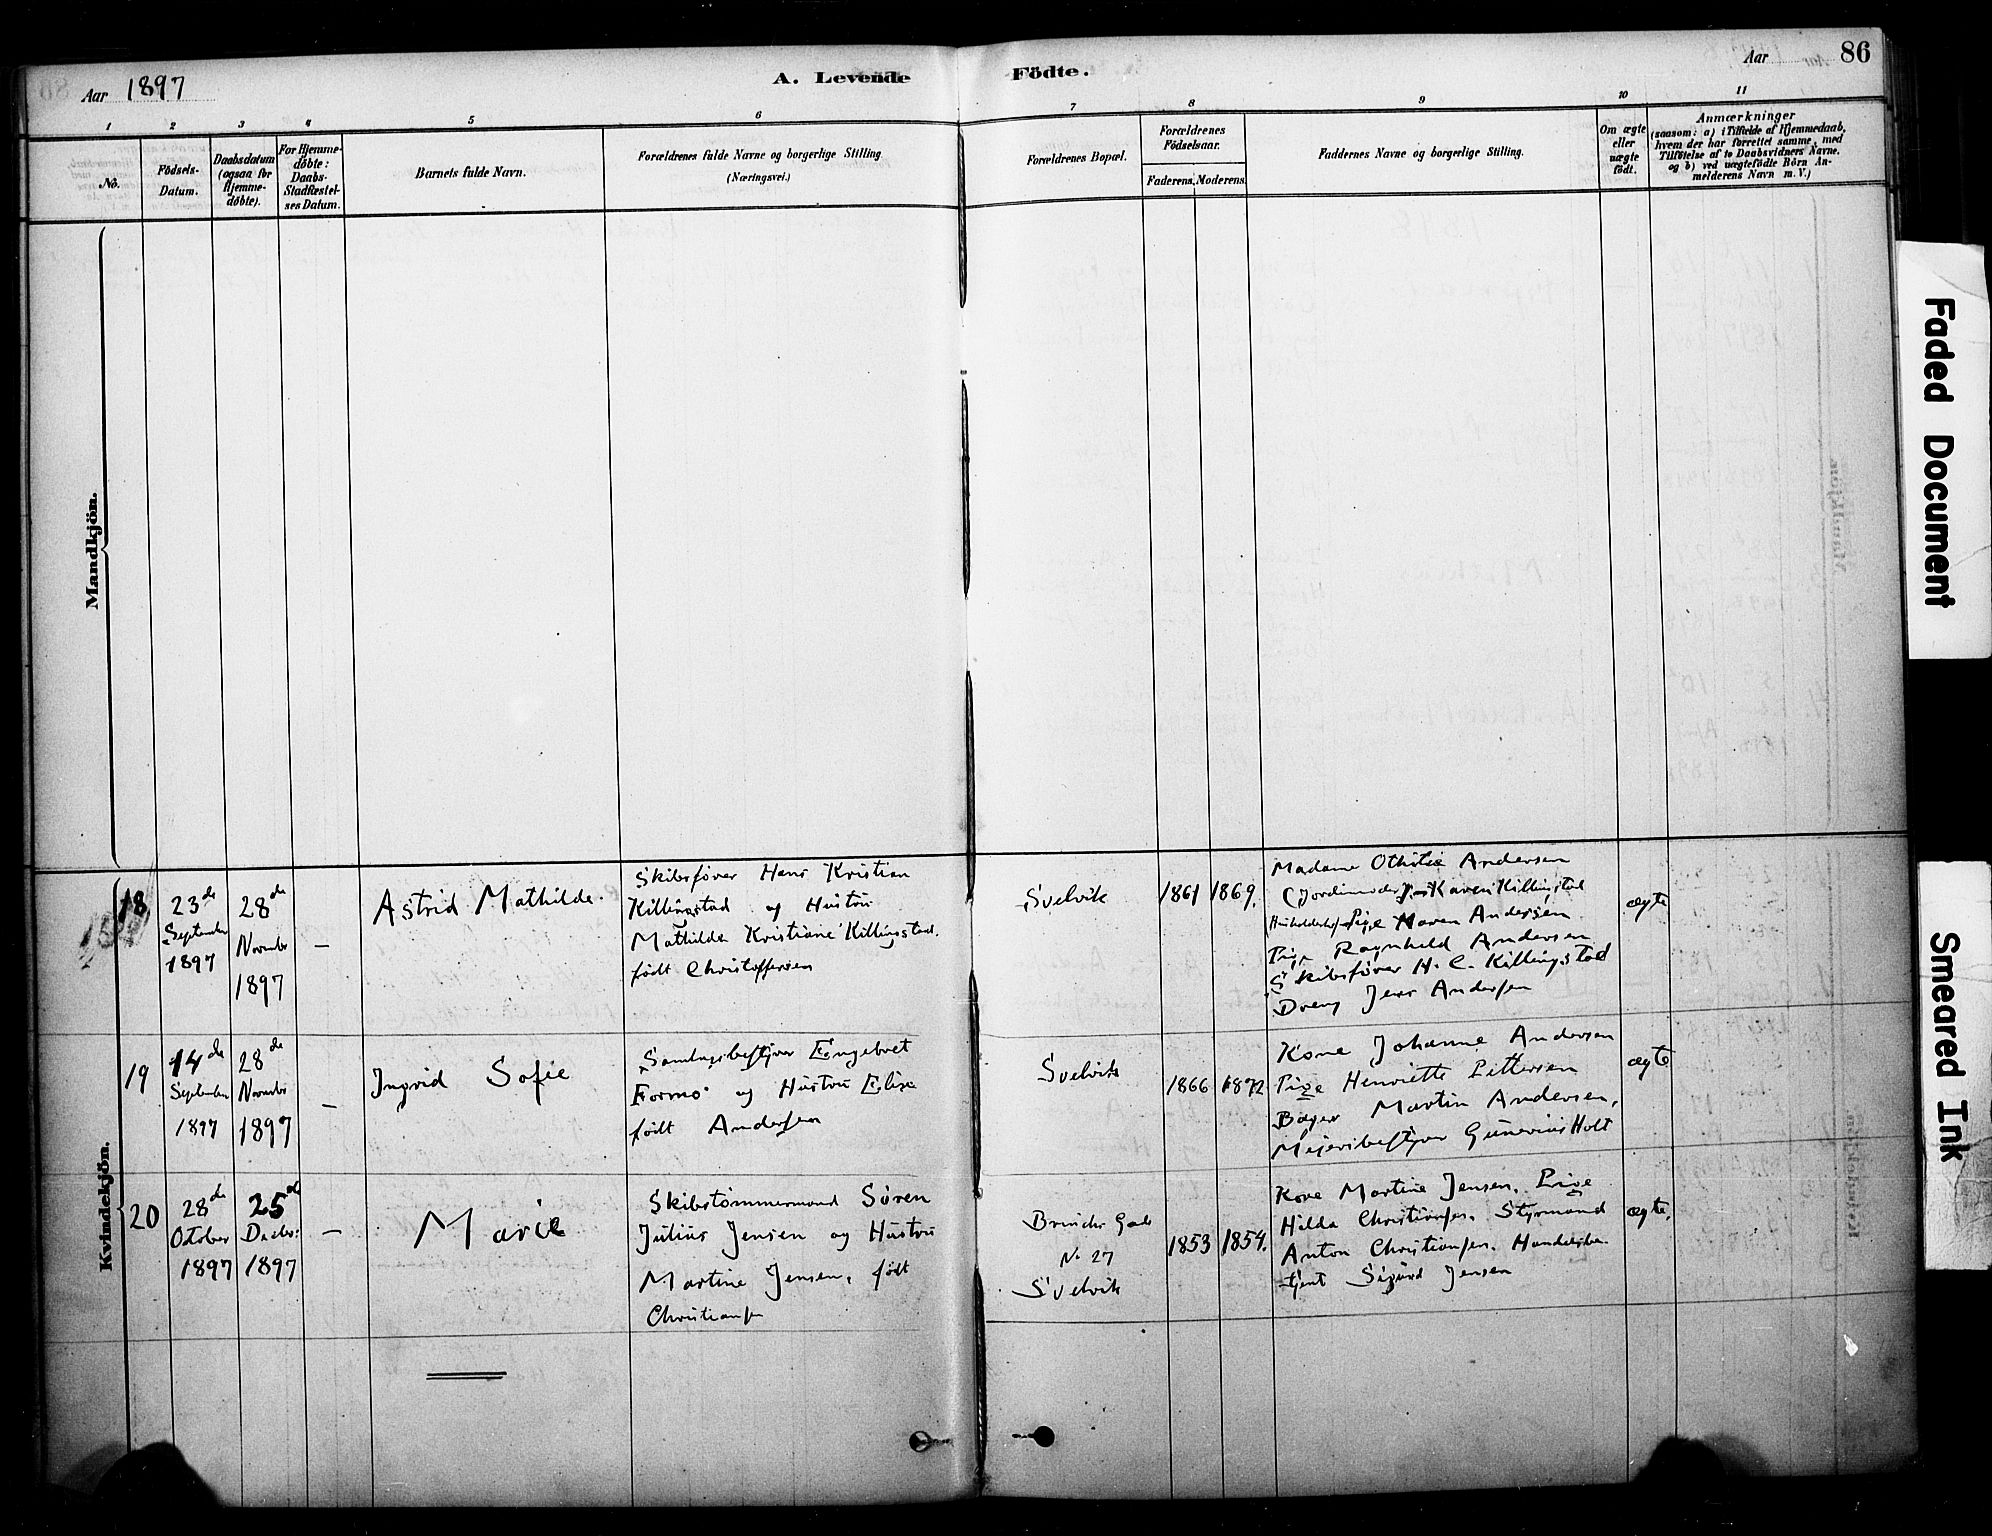 Aar 1897
A. Levende Födte.
Aar 86
1 2 3 4 5 6 7 8 9 10 11
No.
Födsels-Datum.
Daabsdatum (ogsaa for Hjemmedøbte).
For Hjemmedøbte: Daabs-Stadfæstelses Datum.
Barnets fulde Navn.
Forældrenes fulde Navne og borgerlige Stilling
(Næringsvei.)
Forældrenes Bopæl.
Forældrenes Födselsaar.
Faderens. Moderens.
Faddernes Navne og borgerlige Stilling.
Om ægte eller uægte födt.
Anmærkninger
(saasom: a) i Tilfælde af Hjemmedaab, hvem der har forrettet samme, med Tilföielse af to Daabsvidners Navne. og b) ved uægtefödte Börn Anmelderens Navn m. V.)
Mandkjön.
Kvindekjön.
18
23de September 1897
28de Novmbr 1897
–
Astrid Mathilde.
Skibsfører Hans Kristian
Killingstad og Hustru
Mathilde Kristiane Killingstad.
født Christoffersen
Svelvik
1861 1869.
Madame Othilie Andersen
(Jordemoder) Karen Killingstad
Pige Maren Andersen
Pige Ragnhild Andersen
Skibsfører H. C. Killingstad
Dreng Jens Andersen
ægte
19
14de September 1897
28de Novmbr 1897
–
Ingvid Sofie
Samlagsbestyrer Engebret
Formo og Hustru Elise
født Andersen
Svelvik
1866 1872
Kone Johanne Andersen
Pige Henriette Pettersen
Bager Martin Andersen,
Meieribestyrer Gunerius Holt
ægte
20
28de Octobr 1897
25de Decbr: 1897
–
Marie
Skibstømmermand Søren
Julius Jensen og Hustru
Martine Jensen, født
Christiansen
No 27
Svelvik
1853 1854.
Kone Martine Jensen. Pige
Hilda Christiansen. Styrmand
Anton Christiansen. Handelsbe-
tjent Sigurd Jensen
ægte.
Faded Document
Smeared Ink